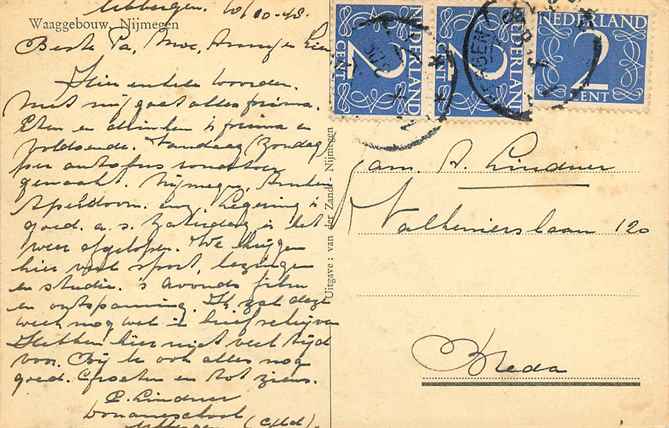 Ubbergen. 10/10-48.
Waaggebouw, Nijmegen
Beste Pa, Moe,
Hier enkele woorden.
Met mij gaat alles prima.
Eten en drinken is prima en
voldoende. Vandaag Zondag
per autobus
gemaakt. Nijmegen, Arnhem
Apeldoorn. enz. Legering is
goed. a.s. Zaterdag is het
weer afgelopen. We krijgen
hier veel sport, lezingen
en studie. 's avonds film
en ontspanning. Ik zal deze
week nog wel 'n brief schrijven
Hebben hier niet veel tijd
voor. Bij U ook alles nog
goed. Groeten en tot ziens.
P. Lindner
Douaneschool
Ubbergen (Gld).
Uitgave: van der Zande - Nijmegen
NEDERLAND
2
CENT
NEDERLAND
2
CENT
NEDERLAND
2
CENT
Fam. A. Lindner
Valkenierslaan 120
Breda